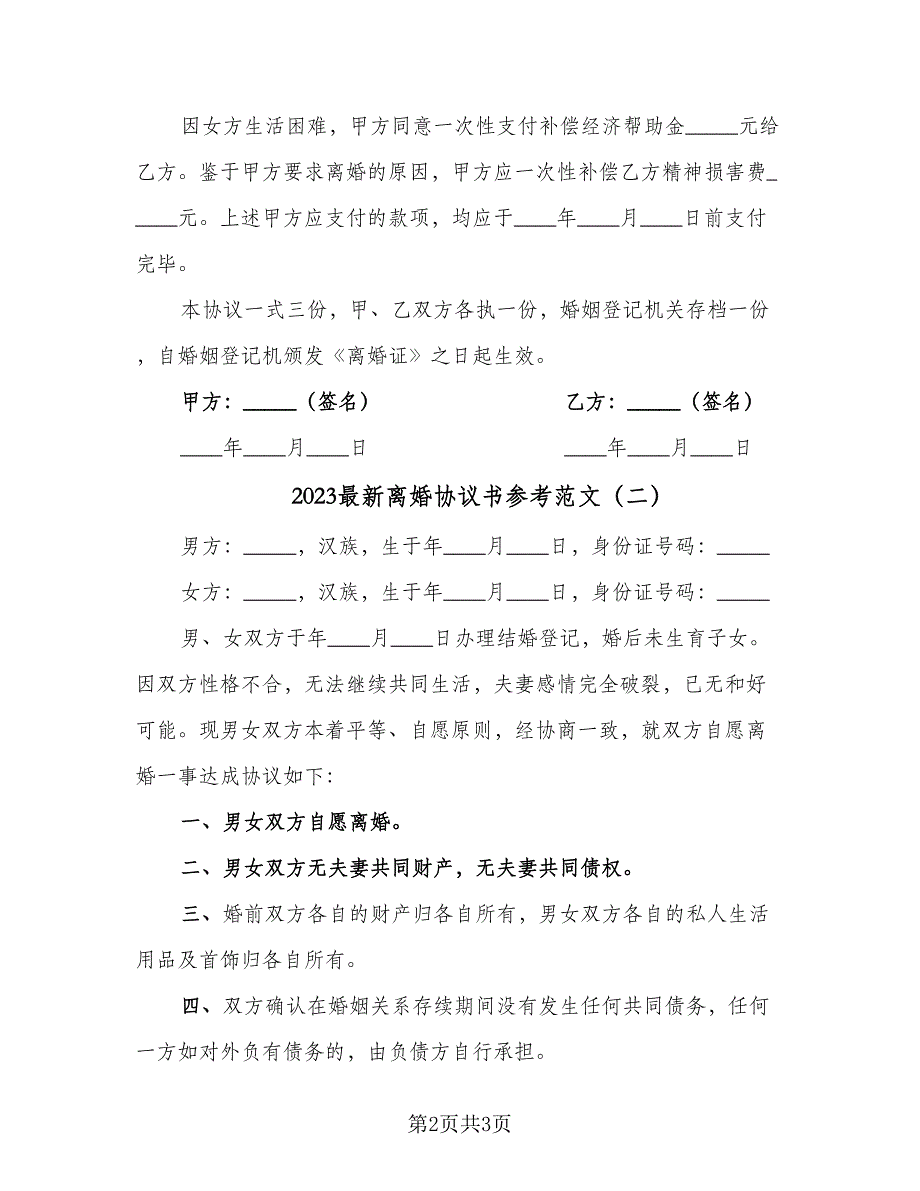 因女方生活困难，甲方同意一次性支付补偿经济帮助金_____元给
乙方。鉴于甲方要求离婚的原因，甲方应一次性补偿乙方精神损害费_
____元。上述甲方应支付的款项，均应于____年____月____日前支付
完毕。
本协议一式三份，甲、乙双方各执一份，婚姻登记机关存档一份
，自婚姻登记机颁发《离婚证》之日起生效。
甲方：_____（签名） 乙方：_____（签名）
____年____月____日 ____年____月____日
2023最新离婚协议书参考范文（二）
男方：_____，汉族，生于年____月____日，身份证号码：_____
女方：_____，汉族，生于年____月____日，身份证号码：_____
男、女双方于年____月____日办理结婚登记，婚后未生育子女。
因双方性格不合，无法继续共同生活，夫妻感情完全破裂，已无和好
可能。现男女双方本着平等、自愿原则，经协商一致，就双方自愿离
婚一事达成协议如下：
一、男女双方自愿离婚。
二、男女双方无夫妻共同财产，无夫妻共同债权。
三、婚前双方各自的财产归各自所有，男女双方各自的私人生活
用品及首饰归各自所有。
四、双方确认在婚姻关系存续期间没有发生任何共同债务，任何
一方如对外负有债务的，由负债方自行承担。
第2页共3页